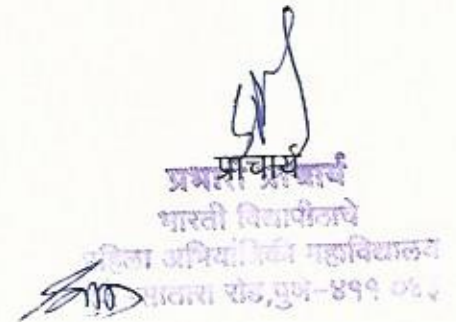 प्राचार्य
प्रभारी प्राचार्य
भारती विद्यापीठाचे
महिला अभियांत्रिकी महाविद्यालय
सातारा रोड,पुणे-४११ ०४३